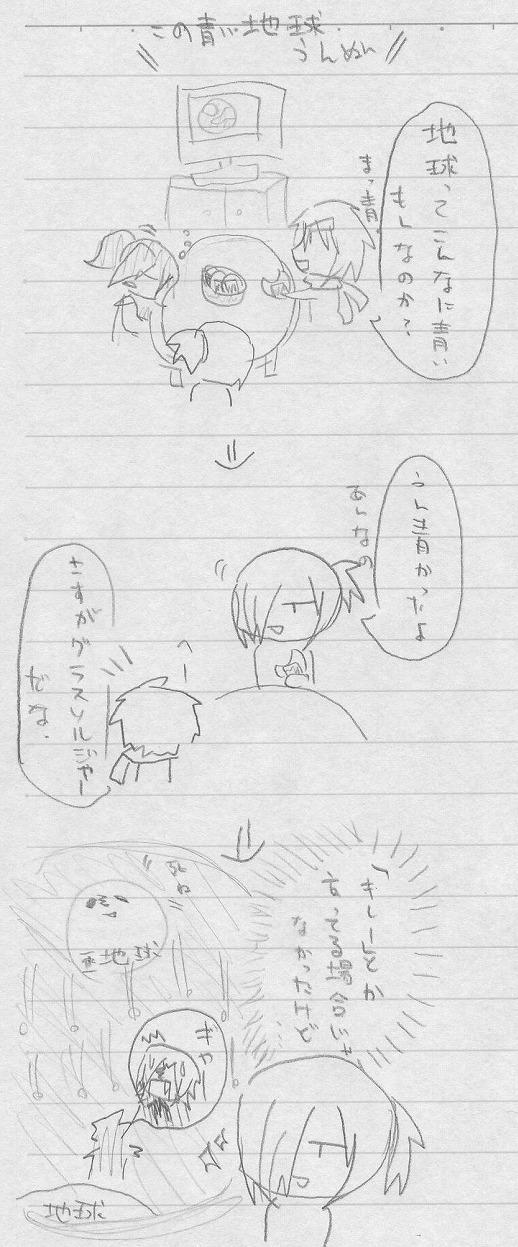 この青い地球
うんぬん
地球ってこんなに青い
もんなのか?
まっ青
うん青かったよ
あんなの
へー
さすがグラスソルジャー
だな.
きれーとか
言ってる場合じゃ
なかったけど
死ぬ
地球
ぎゃ
地球